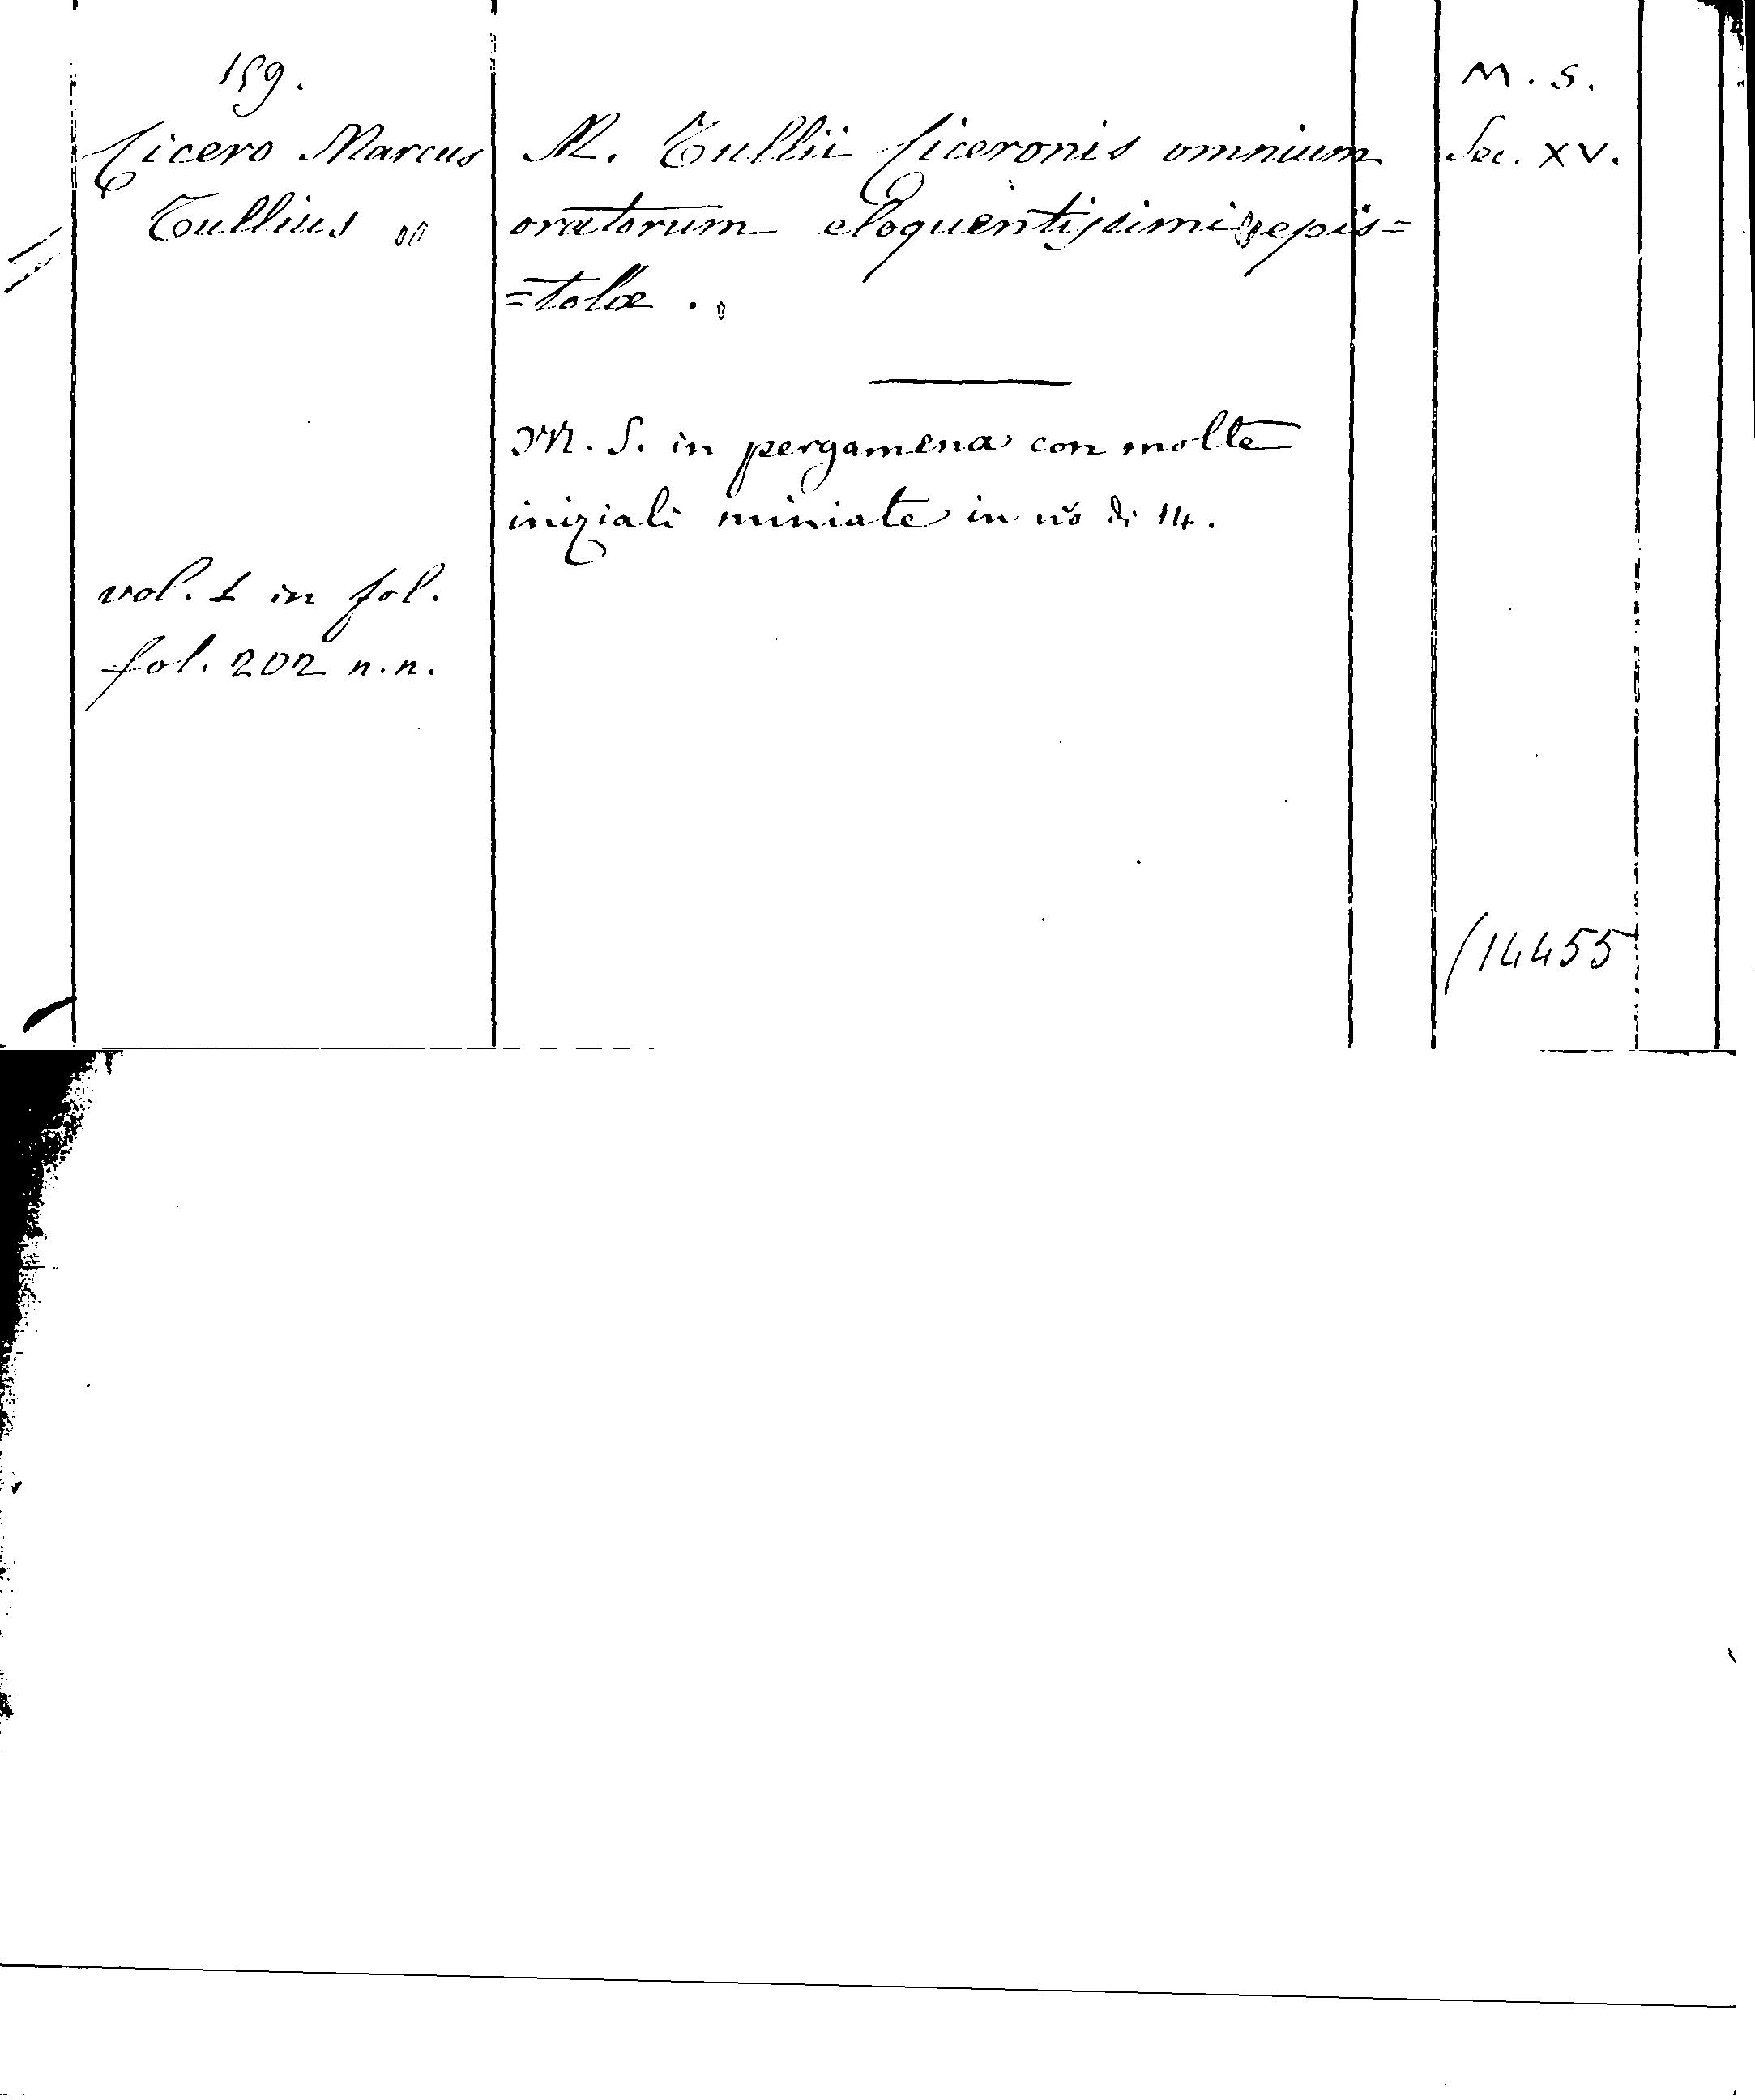 159.
Cicero Marcus
Tullius
M. Tullii Ciceronis omnium
oratorum eloquentissimi epis=
=tolæ .
M. S. in pergamena con molte
iniziali miniate in nº di 14.
vol. 1 in fol.
fol. 202 n.n.
M. S.
Sec. XV.
14455